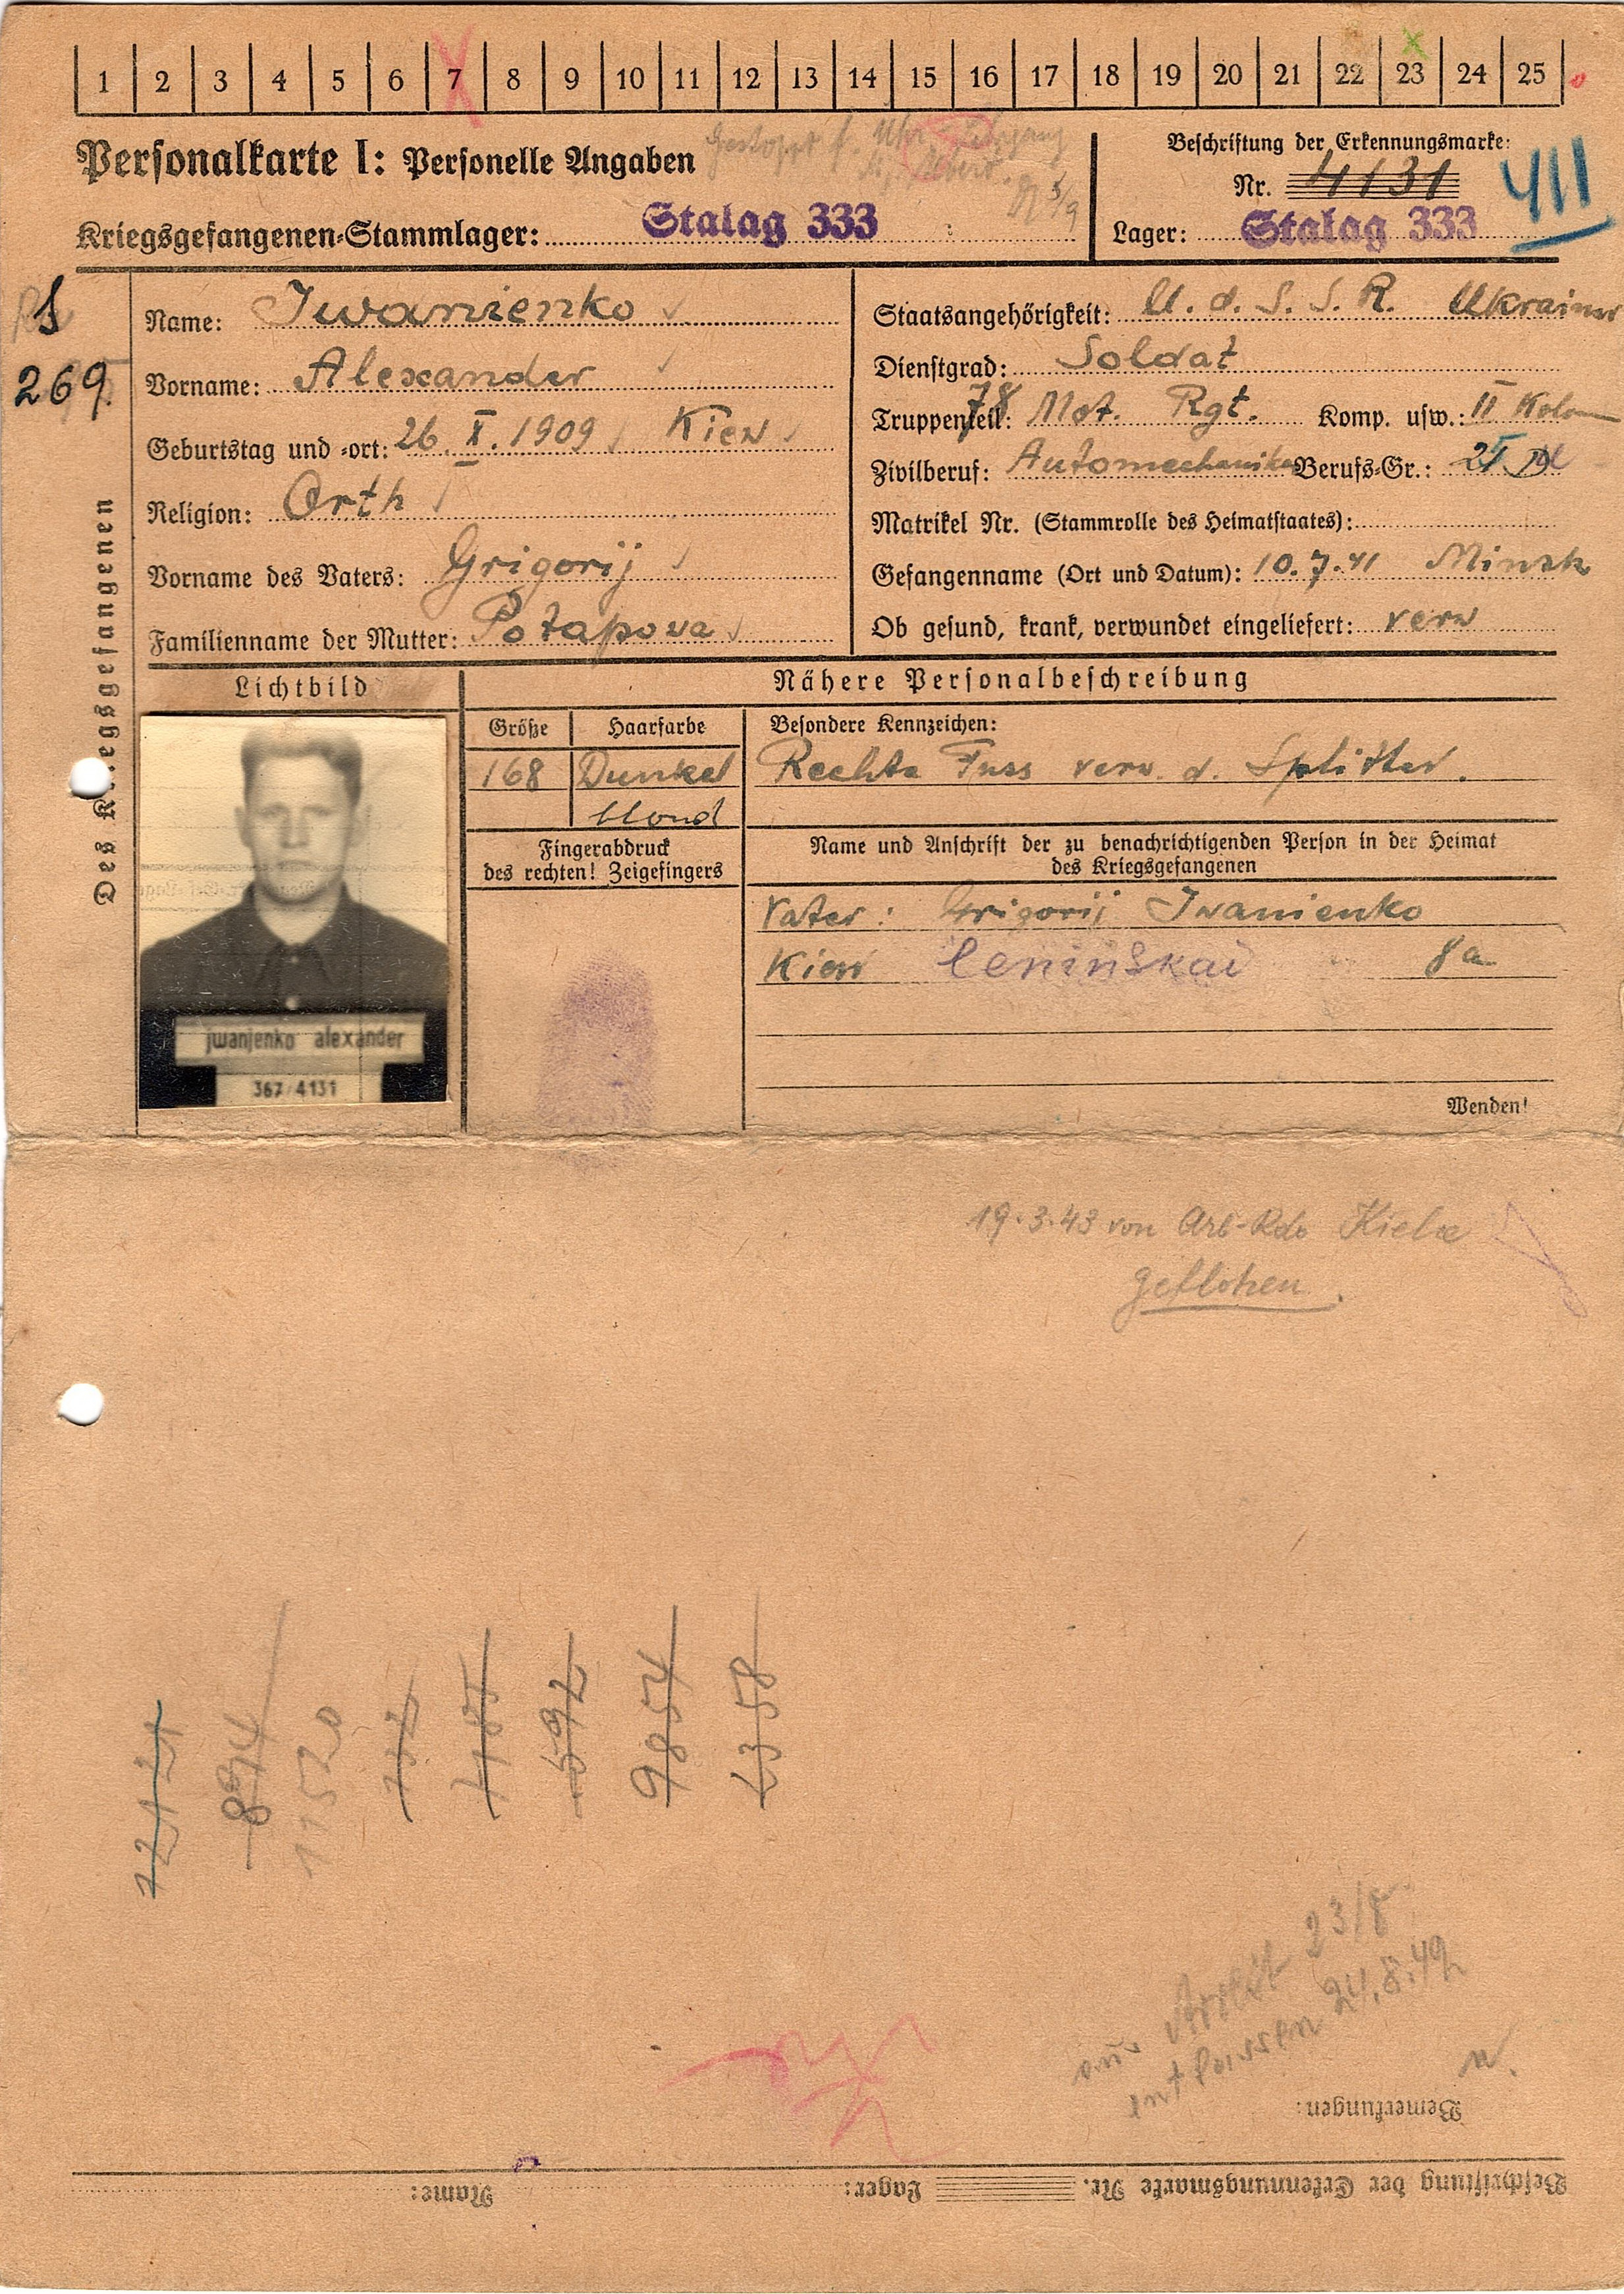 1 2 3 4 5 6 7 8 9 10 11 12 13 14 15 16 17 18 19 20 21 22 23 24 25
Personalkarte I: Personelle Angaben
Beschriftung der Erkennungsmarke:
Nr. 4131
411
Kriegsgefangenen-Stammlager: Stalag 333
Lager: Stalag 333
269
Des Kriegsgefangenen
Name: Iwanienko
Vorname: Alexander
Geburtstag und -ort: 26. X. 1909 Kiew
Religion: Orth
Vorname des Vaters: Grigorij
Familienname der Mutter: Potapowa
Staatsangehörigkeit: U. d. S. S. R. Ukrainer
Dienstgrad: Soldat
Truppenteil: 78 Mot. Rgt. Komp. usw.: II
Zivilberuf: Automechaniker Berufs-Gr.:
Matrikel Nr. (Stammrolle des Heimatstaates):
Gefangennahme (Ort und Datum): 10.7.41 Minsk
Ob gesund, krank, verwundet eingeliefert: verw
Lichtbild
jwanjenko alexander
367 4131
Nähere Personalbeschreibung
Größe
168
Haarfarbe
Dunkel
blond
Besondere Kennzeichen:
Rechte Fuss verw. d. Splitter.
Fingerabdruck
des rechten! Zeigefingers
Name und Anschrift der zu benachrichtigenden Person in der Heimat
des Kriegsgefangenen
Vater: Grigorij Iwanienko
Kiew Leninskai 8a
Wenden!
19.3.43 von Arb-Kdo Kielce
geflohen.
12121
894
11520
732
592
9854
2358
aus Arbeit 23/8
entlassen 24.8.42
Bemerkungen:
Beschriftung der Erkennungsmarke Nr. Lager: Name: